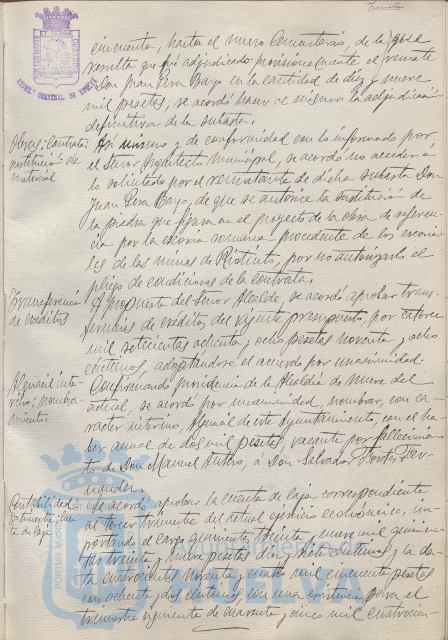 cincuenta, hasta el nuevo Cementerio, de la que
resulta que fué adjudicado provisionalmente el remate
a Don Juan Pera Bayo en la cantidad de diez y nueve
mil pesetas, se acordó hacer al mismo la adjudicación
definitiva de la subasta.
Obras: Contrata
Así mismo y de conformidad con lo informado por
el Señor Arquitecto Municipal, se acordó no acceder a
lo solicitado por el rematante de dicha subasta Don
Juan Pera Bayo, de que se autorice la sustitución de
la piedra que figura en el proyecto de la obra de referen-
cia por la escoria romana procedente de los escoria-
les de las minas de Riotinto, por no autorizarlo el
pliego de condiciones de la contrata.
Transferencia
de créditos
A propuesta del Señor Alcalde, se acordó aprobar trans-
ferencias de créditos del vigente presupuesto, por catorce
mil setecientas ochenta y ocho pesetas noventa y ocho
céntimos, adoptándose el acuerdo por unanimidad.
Alguacil inte-
rino: nombra-
miento
Confirmando providencia de la Alcaldía de nueve del
actual, se acordó por unanimidad, nombrar, con ca-
racter interino, Alguacil de este Ayuntamiento, con el ha-
ber anual de dos mil pesetas, vacante por fallecimien-
to de Don Manuel, a Don Salvador Fer-
nández.
Contabilidad:
Se acordó aprobar la cuenta de caja correspondiente
al tercer trimestre del actual ejercicio económico, im-
portando el cargo quinientas treinta y nueve mil quinien-
tas treinta y nueve pesetas diez y siete céntimos y la da-
ta cuatrocientas noventa y cuatro mil cincuenta pesetas
con ochenta y dos céntimos con una existencia para el
trimestre siguiente de cuarenta y cinco mil cuatrocien-